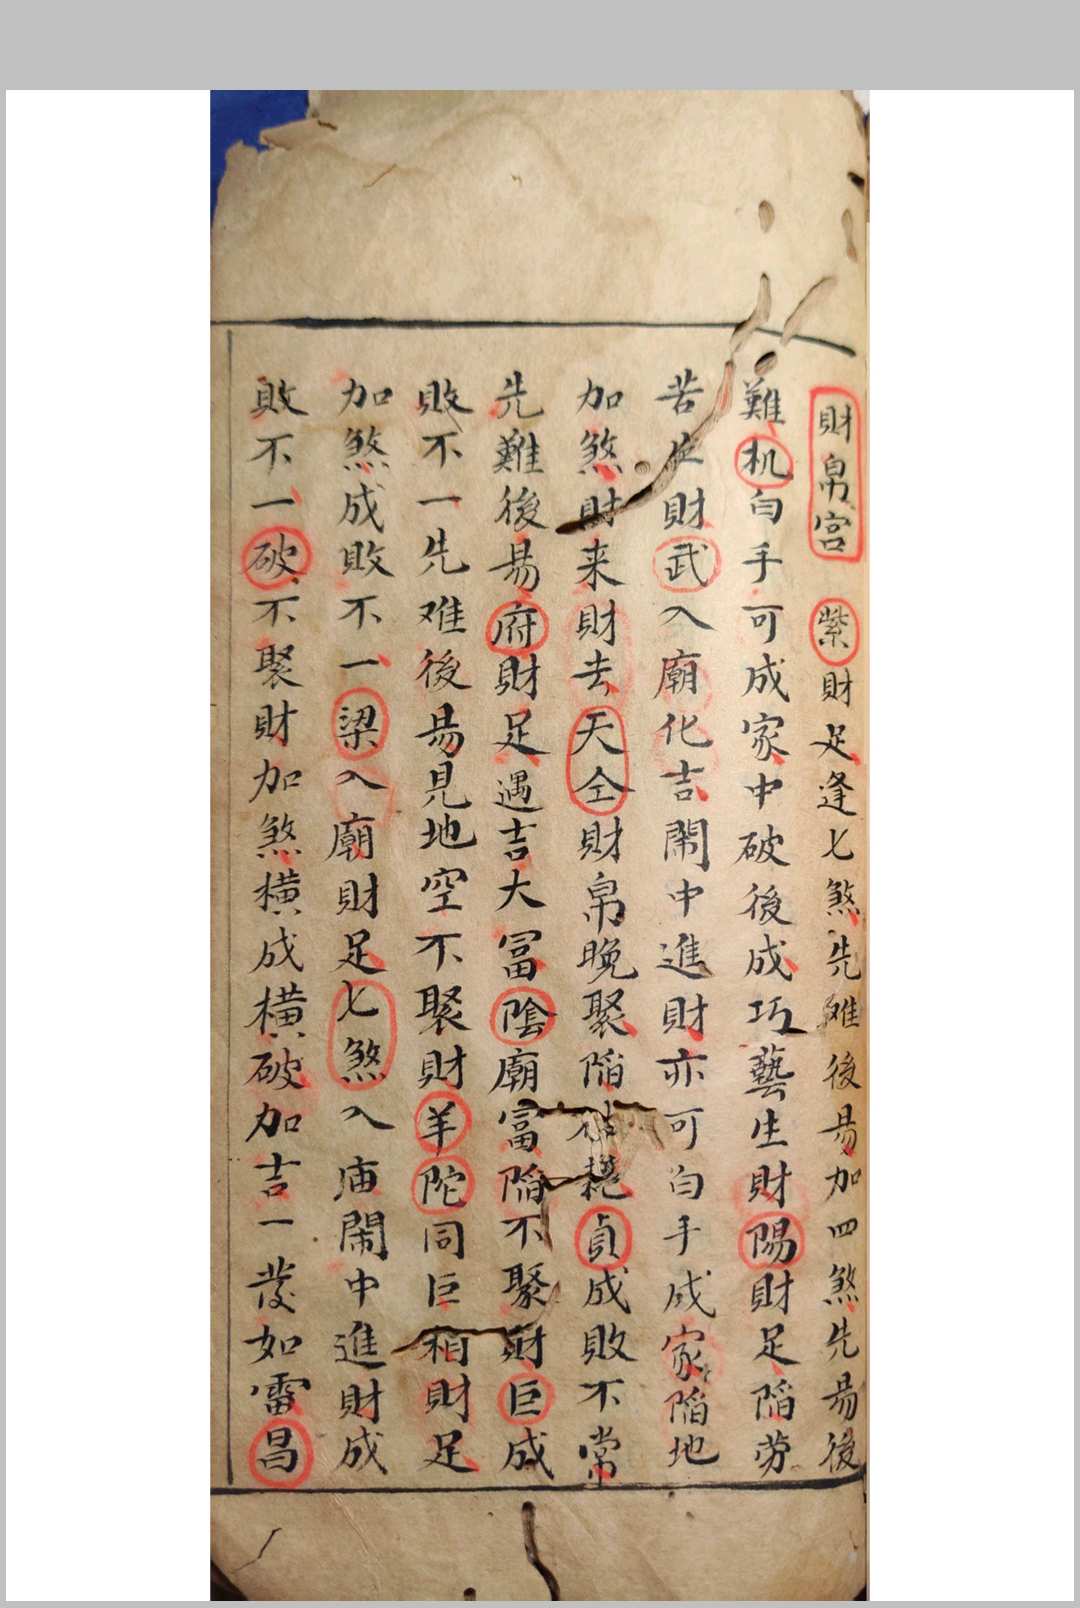 財帛宮 紫財足逢七煞先难後易加四煞先易後
難机白手可成家中破後成巧藝生財陽財足陷劳
苦生財武入廟化吉鬧中進財亦可白手成家陷地
加煞財来財去天仝財帛晚聚陷貞成敗不常
先難後易府財足遇吉大冨陰廟富陷不聚財巨成
敗不一先难後易見地空不聚財羊陀同巨相財足
加煞成敗不一梁入廟財足七煞入庙鬧中進財成
敗不一破不聚財加煞横成横破加吉一發如雷昌